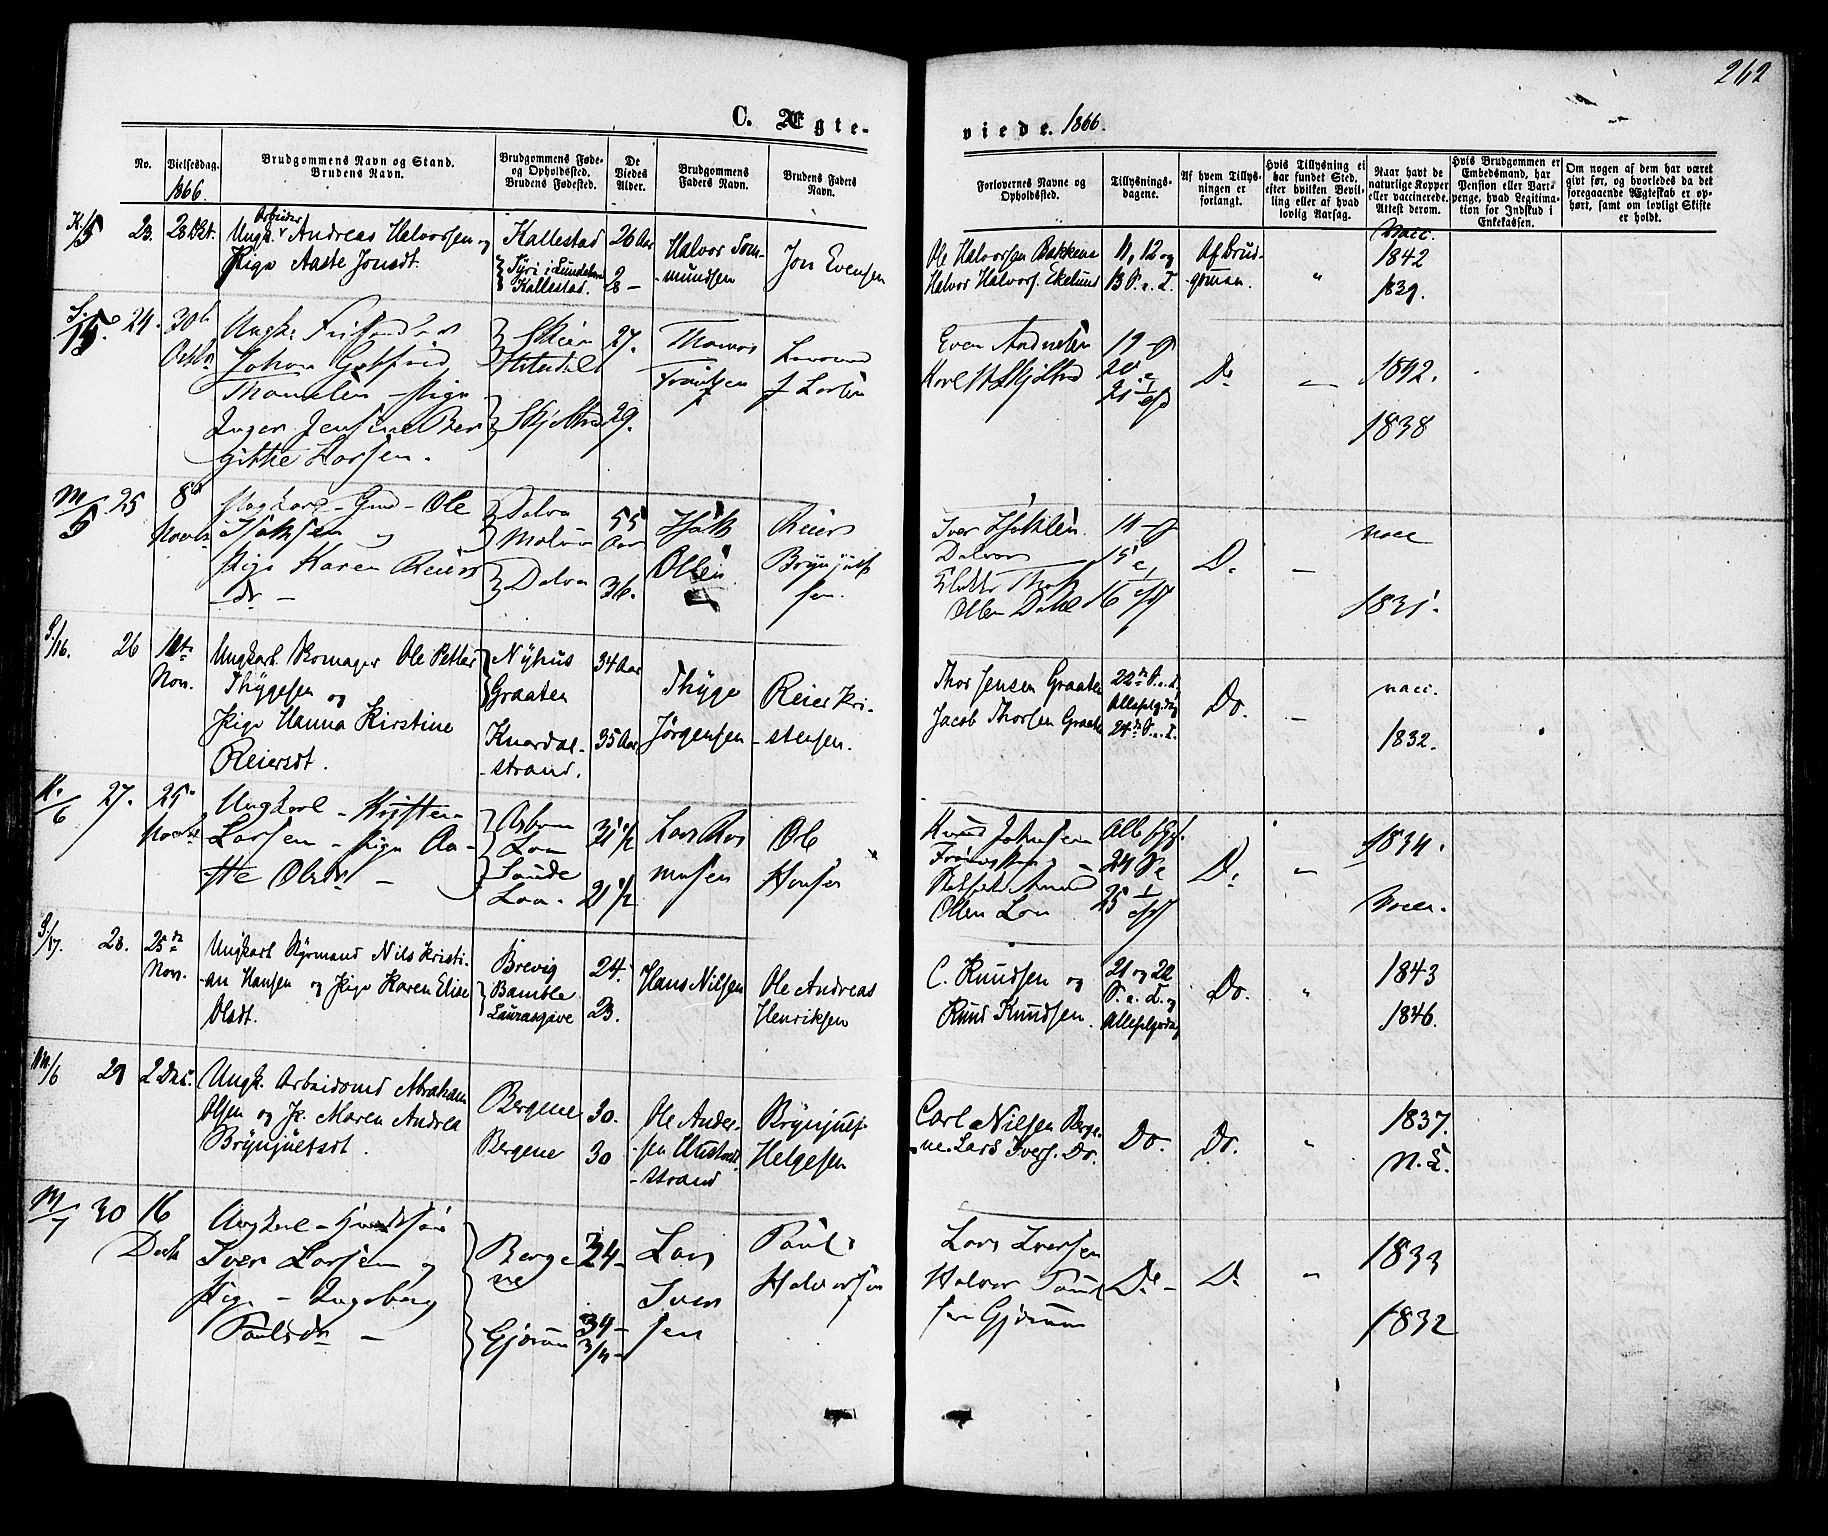 262
C. Ægte-
viede. 1866.
No.
Vielsesdag.
1866.
Brudgommens Navn og Stand.
Brudens Navn.
Brudgommens Føde-
og Opholdssted.
Brudens Fødested.
De
Viedes
Alder.
Brudgommens
Faders Navn.
Brudens Faders
Navn.
Forlovernes Navne og
Opholdssted.
Tillysnings-
dagene.
Af hvem Tillys-
ningen er
forlangt.
Hvis Tillysning ei
har fundet Sted,
efter hvilken Bevil-
ling eller af hvad
lovlig Aarsag.
Naar havt de
naturlige Kopper
eller vaccinerede.
Attest derom.
Hvis Brudgommen er
Embedsmand, har
Pension eller Vart-
penge, hvad Legitima-
tion for Indskud i
Enkekassen.
Om nogen af dem har været
givt før, og hvorledes da det
foregaaende Ægteskab er op-
hørt, samt om lovligt Skifte
er holdt.
K/5
23.
28 Okt.
Arbeider
Ungk. Andreas Halvorsen og
Pige Aaste Jonsdt.
Kallestad
Kallestad.
26 Aar
28 —
Halvor Tom-
mundsen
Jon Evensen
Ole Halvorsen Bakkene
Halvor Halvors. Ekelund
11, 12 og
13 S. e. T.
Af Brud-
gommen.
"
Vacc.
1842
1839.
24.
30te
Octbr
Johan Gotfried
Thomesen Pige
Inger Jensine Ber
githe Larsen.
Skien
Hiterdal
Skjelbred
27.
29.
Thomas
Frantsen
Larsen
Even
19 og
20 e
21
Do
—
1842.
1838
M/5
25
8de
Novbr
Ungkarl Ole
Isaksen og
Pige Karen Reiers
dr —
Dalva
Dalva
55
Aar
36.
Isak
Olsen
Reier
Brynjulf
sen.
Iver Isaksen
Dalva
Olsen Dahl
14 og
15 e
16
Do
—
vacc
1831.
S/16.
26
11te
Nov.
Ungkarl. Bomager Ole Petter
Thygesen og
Pige Hanna Kirstine
Reiersdt.
Nyhus
Graaten
Knardal-
strand.
34 Aar
35 Aar
Thyge
Jørgensen
Reier Kri-
stensen.
Thor Jensen Graaten
Jacob Thorsen Graaten
22de S. e. T.
Allehelgsdag
24de S. e. T.
Do.
—
vacc.
1832.
K/6
27.
25
Novbr
Ungkarl — Kristen
Larsen — Pige Aa-
ste Olsdr —
Asbom
Loa
Lunde
Loa.
31 1/2
21 1/2
Lars Ras
musen
Ole
Hansen
Knud Johnsen
Olsen Loa
24 S. e
25
Do
"
1834.
Vacc.
S/17.
28.
25de
Nov.
Ungkarl Styrmand Nils Kristi-
an Hansen og Pige Karen Elise
Olsdt.
Brevig
Bamble
Laurasgave
24.
23.
Hans Nilsen
Ole Andreas
Henriksen
C. Knudsen og
Knud Knudsen.
21 og 22
S. e. T. og
Allehelgsdag
Do.
"
1843
1846.
M/6
29
2 Dec.
Ungk. Arbeidsmd Abraham
Olsen og P. Maren Andrea
Brynjulfsdt.
Bergene
Bergene
30.
30
Ole Ander-
sen
strand
Brynjulf
Helgesen
Carl Nilsen Berge-
ne. Lars Ivers. Do.
Do.
Do.
"
1837.
N. K.
M/7
30
16
Decb
Ungkarl
Iver Larsen og
Pige — Ingeborg
Poulsdr —
Berge
ne
Gjerum
34 —
34 —
Lars
Iver
sen
Poul
Halvorsen
Lars Iversen
Halvor Poul
sen Gjerum
Do —
Do
"
1833
1832